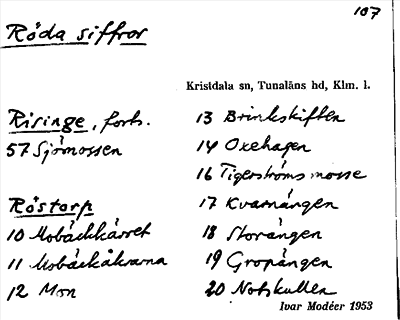 107
Röda siffror
Kristdala sn, Tunaläns hd, Klm. l.
Risinge, forts.
57 Sjömossen
Röstorp
10 Mobäckkärret
11 Mobäckåkrarna
12 Mon
13 Brinkskiften
14 Oxehagen
16 Tigerströms mosse
17 Kvarnängen
18 Storängen
19 Gropängen
20 Notskullen
Ivar Modéer 1953